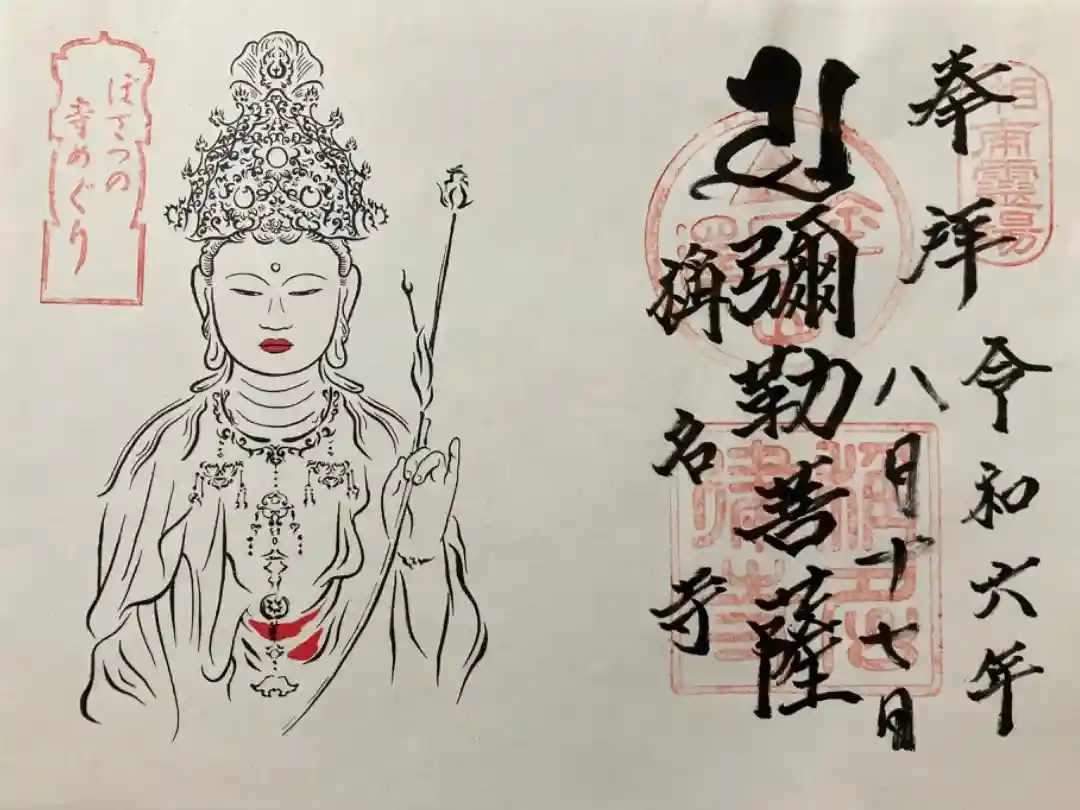 奉拝
令和六年
八月十七日
彌勒菩薩
稱名寺
金澤山
ぼさつの
寺めぐり